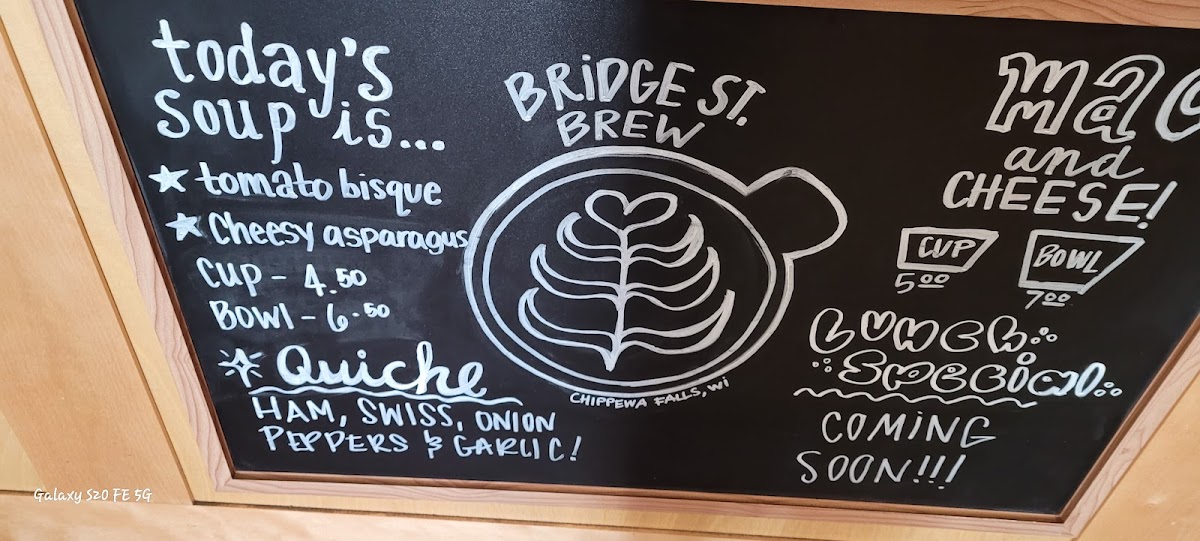 today's
soup is...
★ tomato bisque
★ Cheesy asparagus
CUP - 4.50
BOWl - 6.50
Quiche
HAM, SWISS, ONION
PEPPERS & GARLIC!
BRIDGE ST.
BREW
CHIPPEWA FALLS, WI
mac
and
CHEESE!
CUP
5.00
BOWL
7.00
LUNCH
SPECIAL
COMING
SOON!!!
Galaxy S20 FE 5G